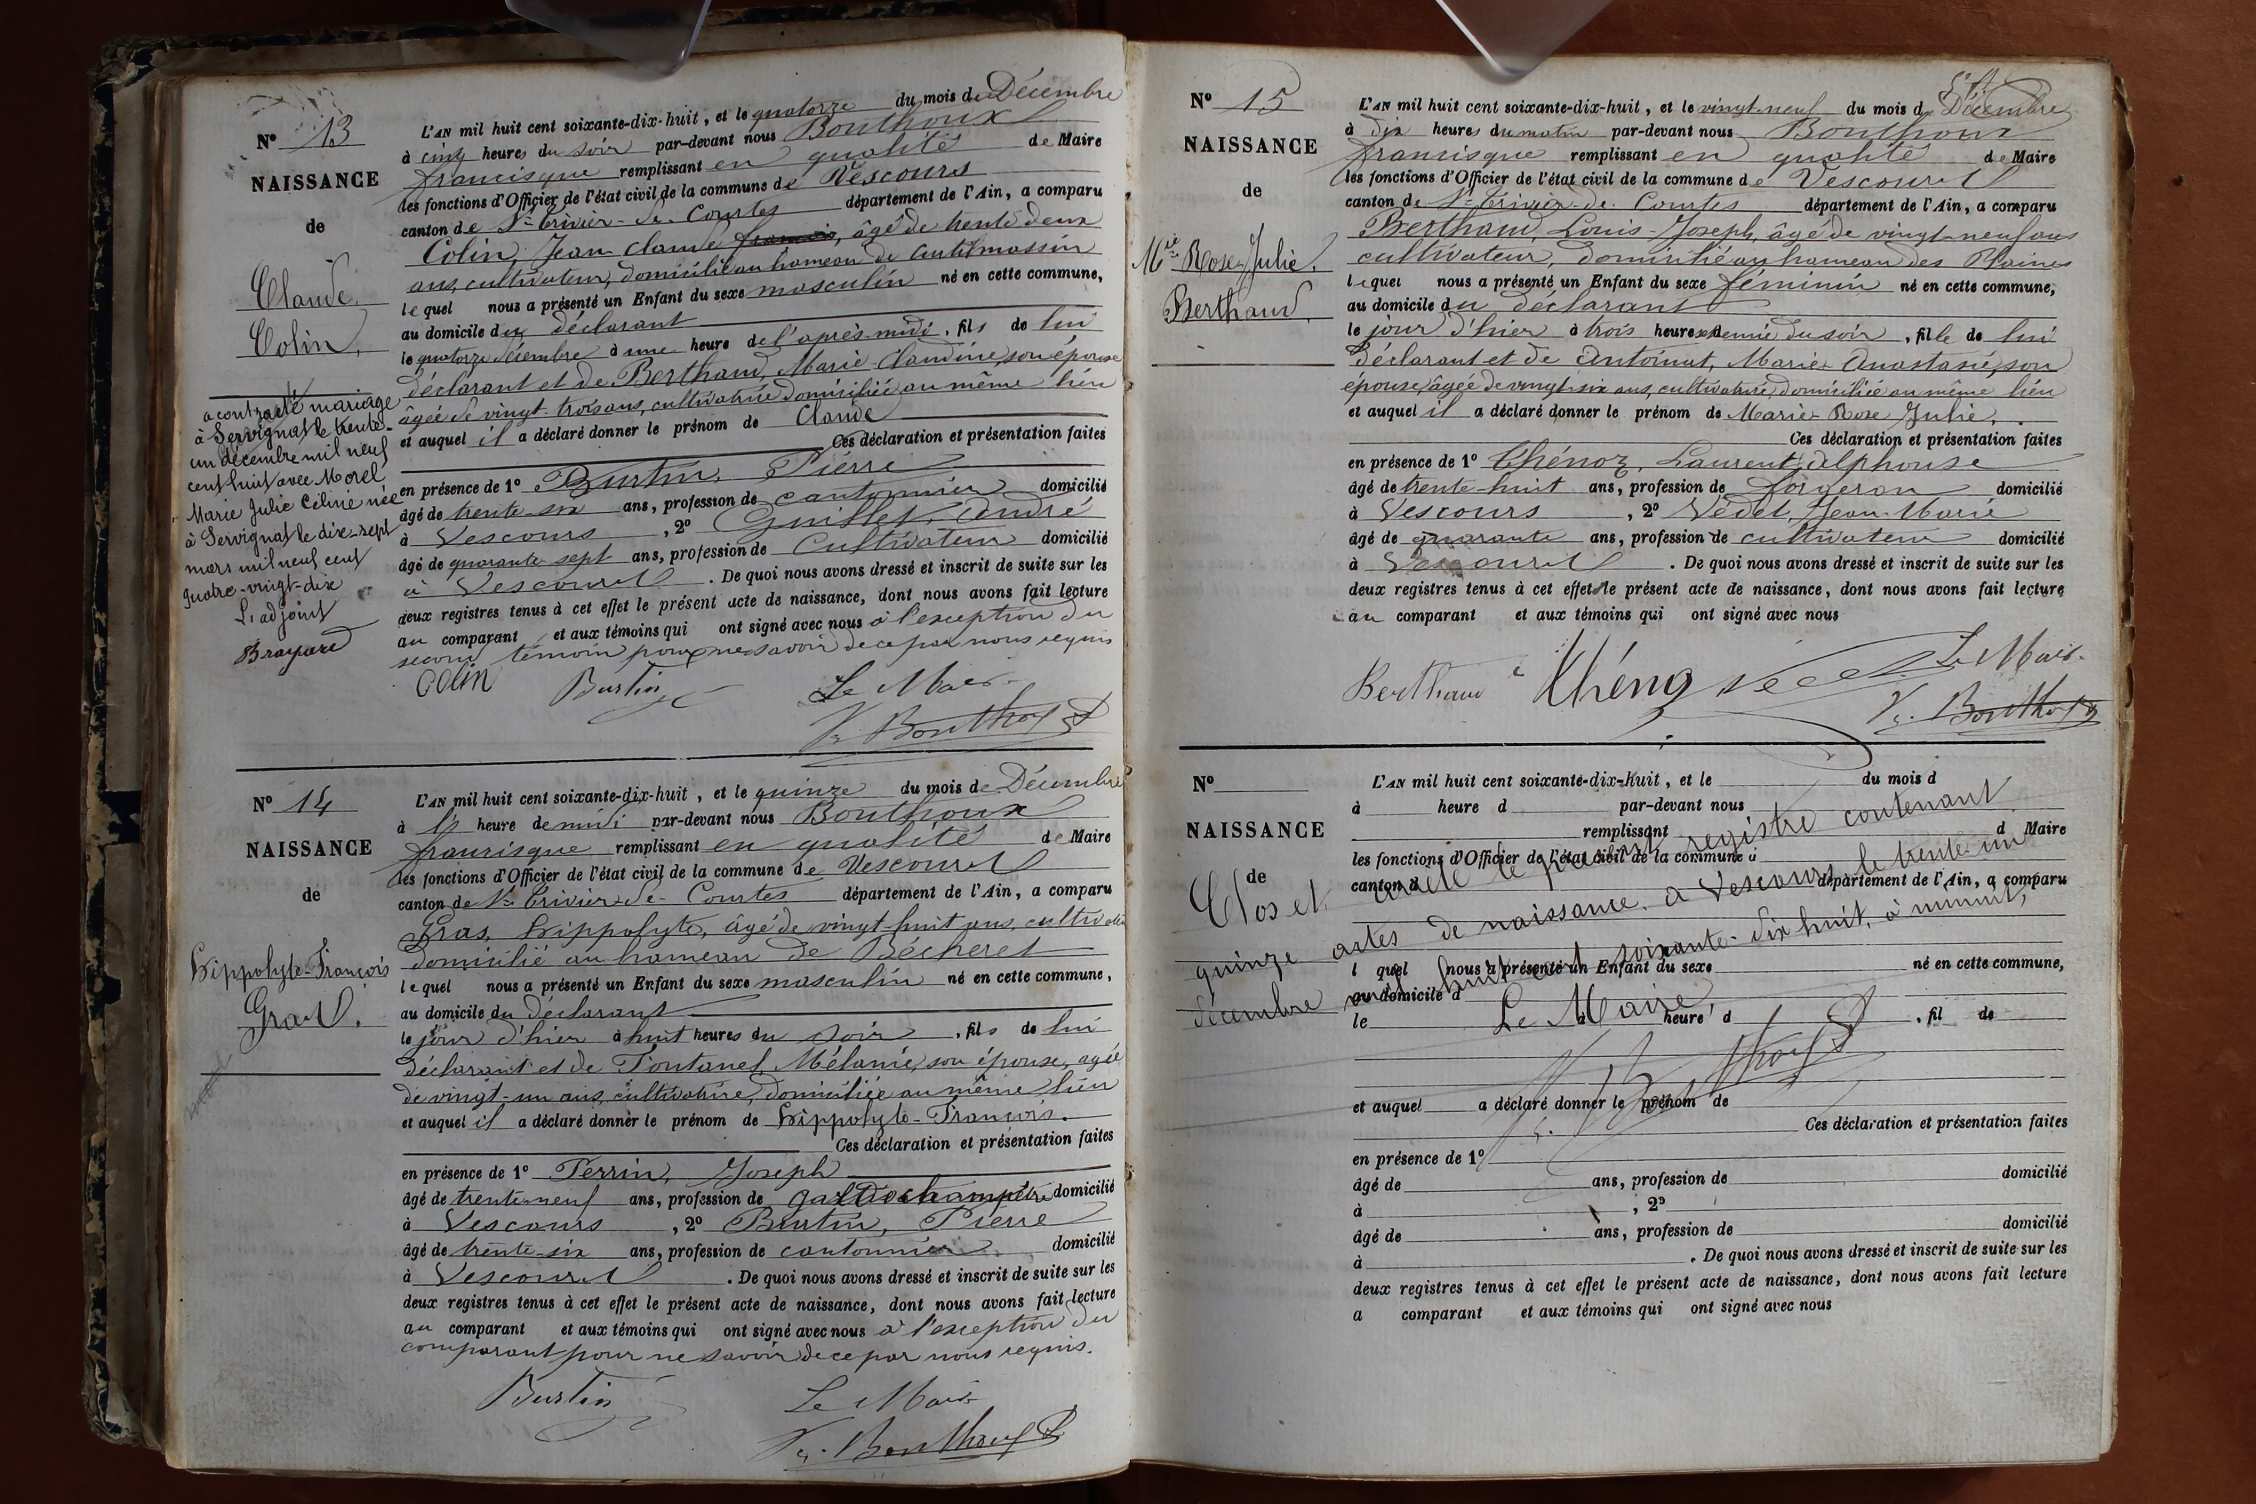 N° 13
NAISSANCE
de
Claude
Colin.
L'AN mil huit cent soixante-dix-huit, et le quatorze du mois de Décembre
à cinq heures du soir par-devant nous Bouthoux
francisque remplissant en qualité de Maire
les fonctions d'Officier de l'état civil de la commune de Vescours
canton de St Trivier-de-Courtes département de l'Ain, a comparu
Colin, Jean Claude, âgé de trente deux
ans, cultivateur, domicilié au hameau de
lequel nous a présenté un Enfant du sexe masculin né en cette commune,
au domicile du déclarant
le quatorze décembre à une heure de l'après-midi, fils de lui
déclarant et de Berthaud, Marie-Claudine, son épouse
âgée de vingt-trois ans, cultivatrice domiciliée au même lieu
et auquel il a déclaré donner le prénom de Claude
Ces déclaration et présentation faites
en présence de 1° Burtin, Pierre
âgé de trente-six ans, profession de cantonnier domicilié
à Vescours, 2° Guillet, André
âgé de quarante sept ans, profession de Cultivateur domicilié
à Vescours. De quoi nous avons dressé et inscrit de suite sur les
deux registres tenus à cet effet le présent acte de naissance, dont nous avons fait lecture
au comparant et aux témoins qui ont signé avec nous à l'exception du
second témoin pour ne savoir de ce par nous requis
Colin Burtin Le Maire
Fr. Bouthoux
a contracté mariage
à Servignat le trente-
un décembre mil neuf
cent huit avec Morel
Marie Julie Céline née
à Servignat le dix-sept
mars mil neuf cent
quatre-vingt-dix
L'adjoint
Brayard
N° 14
NAISSANCE
de
Hippolyte-François
Gras.
L'AN mil huit cent soixante-dix-huit, et le quinze du mois de Décembre
à heure de midi par-devant nous Bouthoux
francisque remplissant en qualité de Maire
les fonctions d'Officier de l'état civil de la commune de Vescours
canton de St Trivier-de-Courtes département de l'Ain, a comparu
Gras, Hippolyte, âgé de vingt-huit ans, cultivateur
domicilié au hameau de Bécheret
lequel nous a présenté un Enfant du sexe masculin né en cette commune,
au domicile du déclarant
le jour d'hier à huit heures du soir, fils de lui
déclarant et de Fontanel, Mélanie, son épouse, agée
de vingt-un ans, cultivatrice, domiciliée au même lieu
et auquel il a déclaré donner le prénom de Hippolyte-François.
Ces déclaration et présentation faites
en présence de 1° Perrin, Joseph
âgé de trente-neuf ans, profession de garde champêtre domicilié
à Vescours, 2° Burtin, Pierre
âgé de trente-six ans, profession de cantonnier domicilié
à Vescours. De quoi nous avons dressé et inscrit de suite sur les
deux registres tenus à cet effet le présent acte de naissance, dont nous avons fait lecture
au comparant et aux témoins qui ont signé avec nous à l'exception du
comparant pour ne savoir de ce par nous requis.
Burtin Le Maire
Fr. Bouthoux
N° 15
NAISSANCE
de
Mie Rose Julie.
Berthaud.
L'AN mil huit cent soixante-dix-huit, et le vingt-neuf du mois de Décembre
à dix heures du matin par-devant nous Bouthoux
francisque remplissant en qualité de Maire
les fonctions d'Officier de l'état civil de la commune de Vescours
canton de St Trivier-de-Courtes département de l'Ain, a comparu
Berthaud, Louis-Joseph, âgé de vingt-neuf ans
cultivateur, domicilié au hameau des Plaines
lequel nous a présenté un Enfant du sexe féminin né en cette commune,
au domicile du déclarant
le jour d'hier à trois heures demie du soir, fille de lui
déclarant et de Antoinat, Marie-Anastasie, son
épouse, âgée de vingt-six ans, cultivatrice, domiciliée au même lieu
et auquel il a déclaré donner le prénom de Marie-Rose Julie.
Ces déclaration et présentation faites
en présence de 1° Chénoz, Laurent, alphonse
âgé de trente-huit ans, profession de forgeron domicilié
à Vescours, 2° Védel, Jean-Marie
âgé de quarante ans, profession de cultivateur domicilié
à Vescours. De quoi nous avons dressé et inscrit de suite sur les
deux registres tenus à cet effet le présent acte de naissance, dont nous avons fait lecture
au comparant et aux témoins qui ont signé avec nous
Berthaud Le Maire
Fr. Bouthoux
N°
NAISSANCE
de
L'AN mil huit cent soixante-dix-huit, et le du mois d
à heure d par-devant nous
remplissant d Maire
les fonctions d'Officier de l'état civil de la commune d
canton d département de l'Ain, a comparu
l quel nous a présenté un Enfant du sexe né en cette commune,
au domicile d
le à heure d , fil de
et auquel a déclaré donner le prénom de
Ces déclaration et présentation faites
en présence de 1°
âgé de ans, profession de domicilié
à , 2°
âgé de ans, profession de domicilié
à . De quoi nous avons dressé et inscrit de suite sur les
deux registres tenus à cet effet le présent acte de naissance, dont nous avons fait lecture
a comparant et aux témoins qui ont signé avec nous
Clos et arrêté le présent registre contenant
quinze actes de naissance. à Vescours, le trente-un
décembre mil huit cent soixante-dix huit, à minuit,
Le Maire,
Fr. Bouthoux